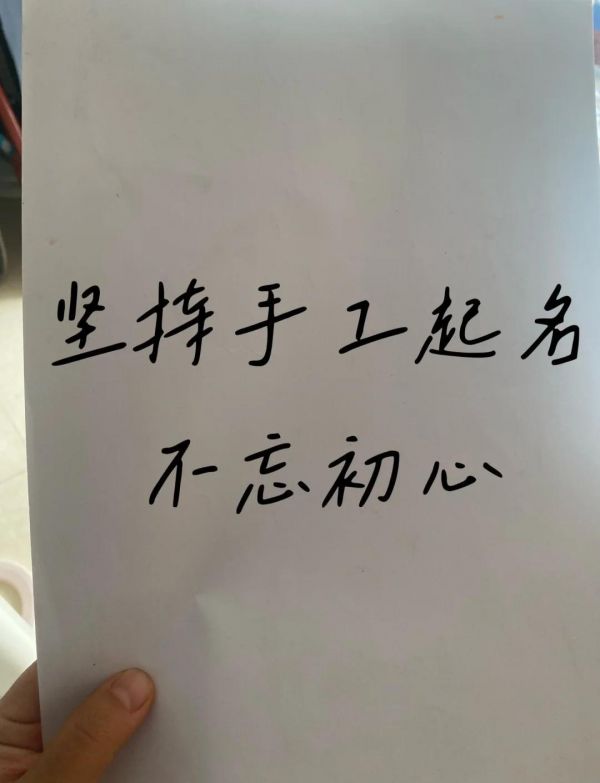 坚持手工起名
不忘初心